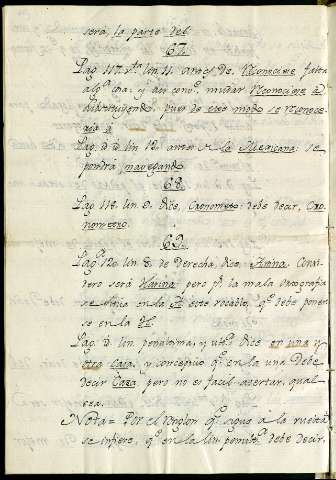 será, la parte del
67.
Pag. 117. vta. lin. 11. antes de Reconociere falta
algª cosa: y asi convª mudar Reconociere á
substituyendo pues de este modo se reconoce-
rá á
Pag. d. d. lin. 12. antes de la Mexicana: se
pondrá, navegando
68.
Pag. 118. lin. 9. dice, Cronometo: debe decir, Cro-
nometro.
69.
Pagª 120. lin. 8. de derecha, dice Arina. Consi-
dero será Harina: pero pr. la mala ortografia
se omitia en la A este vocablo, qe. debe poner-
se en la H.
Pag. d. lin. penultima, y ultª. dice en una y
otra Casa, y concepttuo qe. en la una debe
decir Caza, pero no es facil acertar, qual
sea.
Nota = Por el renglon qe. sigue á la vuelta
se infiere, qe. en la lin. penultª. debe decir,